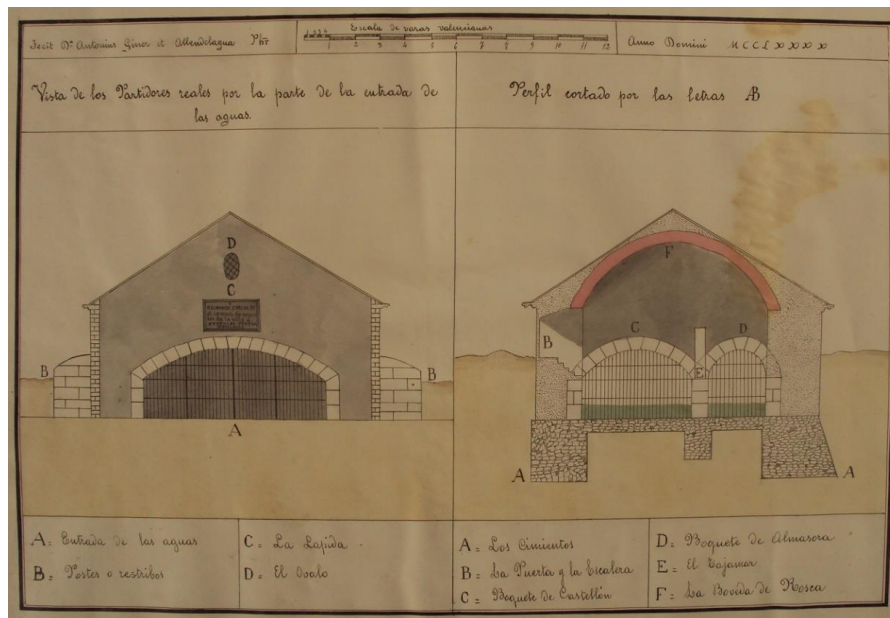 Fecit Dr Antonius Giner et Allendelagua Pbr
Escala de varas valencianas
1 2 3 4 5 6 7 8 9 10 11 12
Anno Domini
Vista de los Partidores reales por la parte de la entrada de
las aguas.
Perfil cortado por las letras AB
D
C
B
B
A
F
C
D
B
E
A
A
A = Entrada de las aguas
B = Postes o restribos
C = La Lapida
D = El Ovalo
A = Los Cimientos
B = La Puerta y la Escalera
C = Boquete de Castellón
D = Boquete de Almasora
E = El Tajamar
F = La Boveda de Rosca